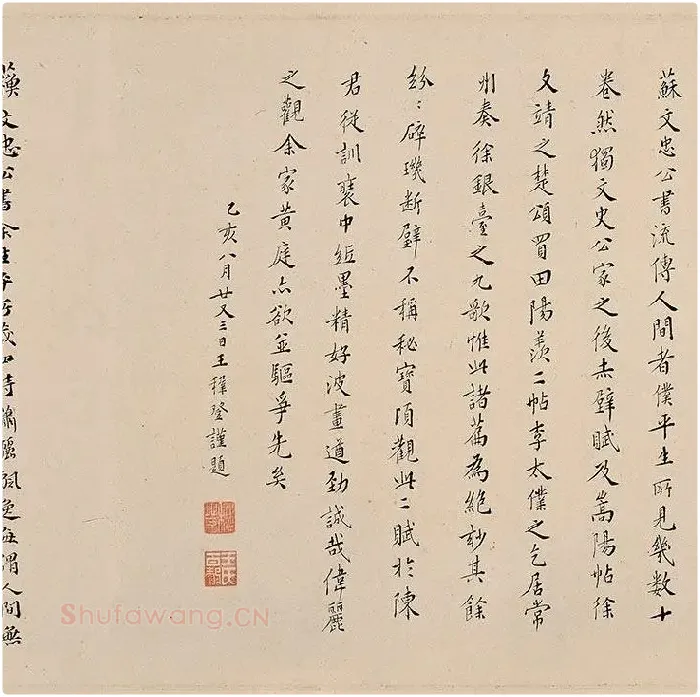 蘇文忠公書流傳人間者僕平生所見幾數十
卷然獨文史公家之後赤壁賦及嵩陽帖徐
文靖之楚頌買田陽羨二帖李太僕之乞居常
州奏徐銀臺之九歌惟此諸篇為絕玅其餘
紛〻碎璣断璧不稱秘寶頃觀此二賦於陳
君從訓褱中紙墨精好波畫遒勁誠哉偉麗
之觀余家黃庭亦欲並驅爭先矣
乙亥八月廿又三日王穉登謹題
文忠公書余生平所 人間無
Shufawang.CN